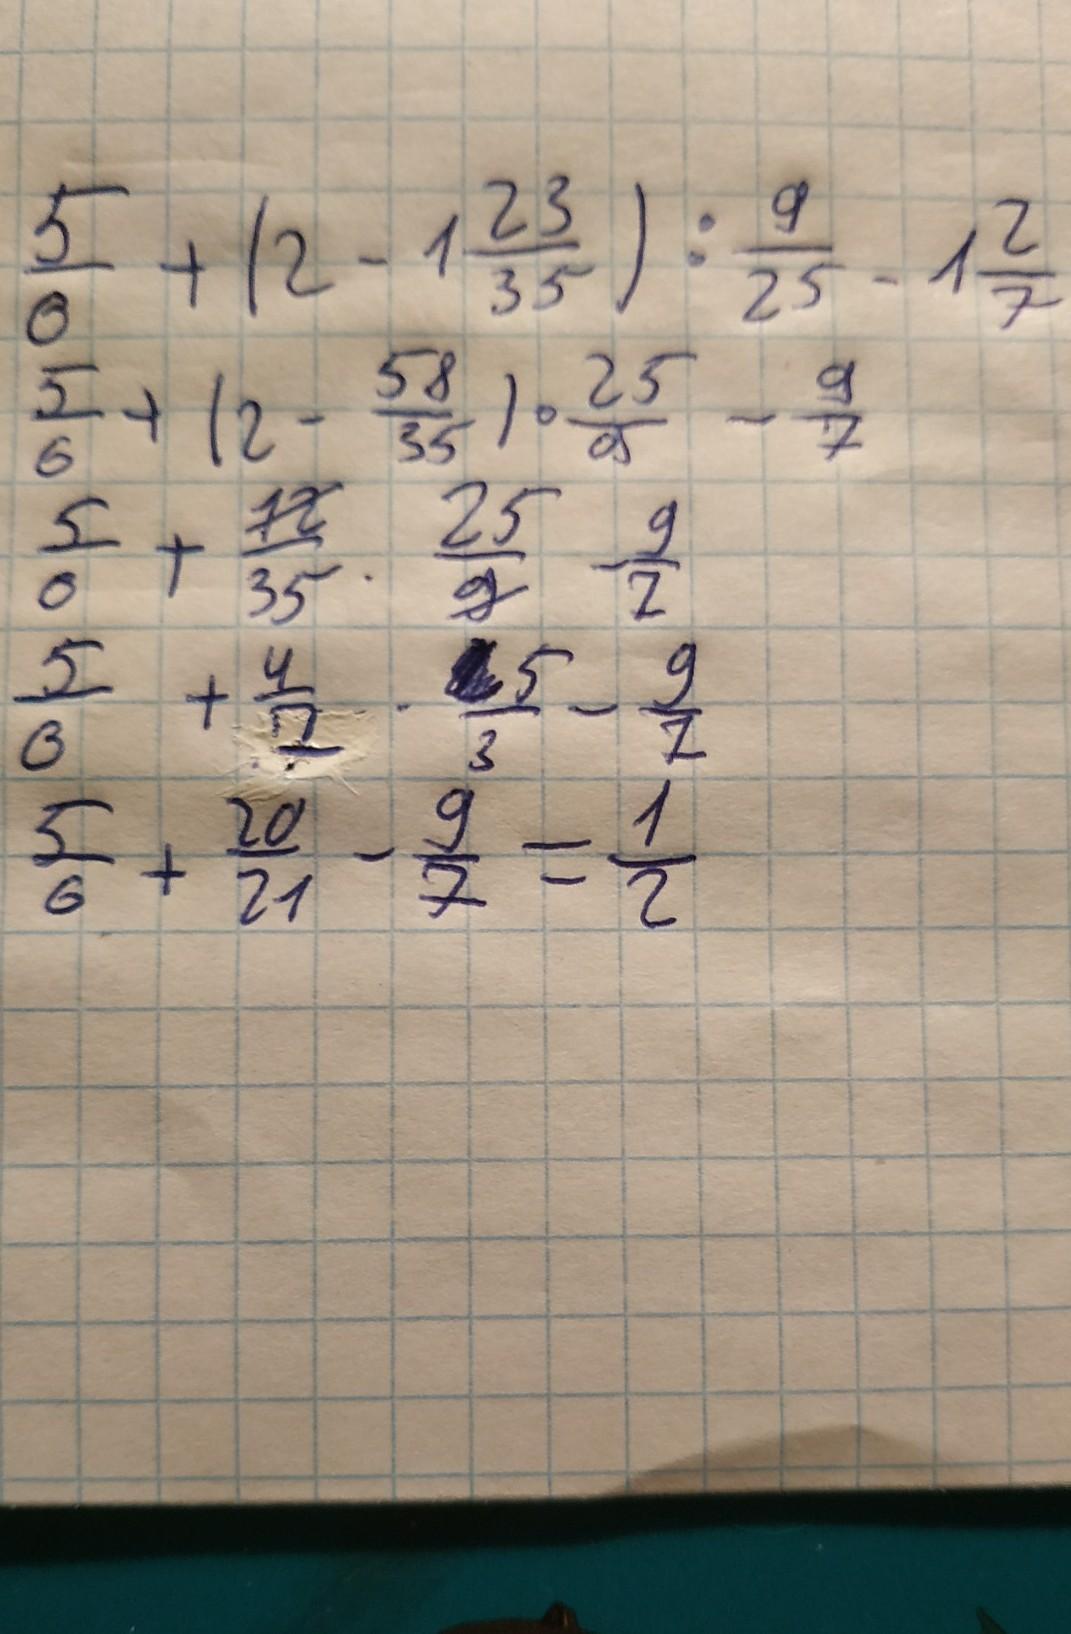 5/6 + (2 - 1 23/35) : 9/25 - 1 2/7
5/6 + (2 - 58/35) · 25/9 - 9/7
5/6 + 12/35 · 25/9 - 9/7
5/6 + 4/7 · 5/3 - 9/7
5/6 + 20/21 - 9/7 = 1/2